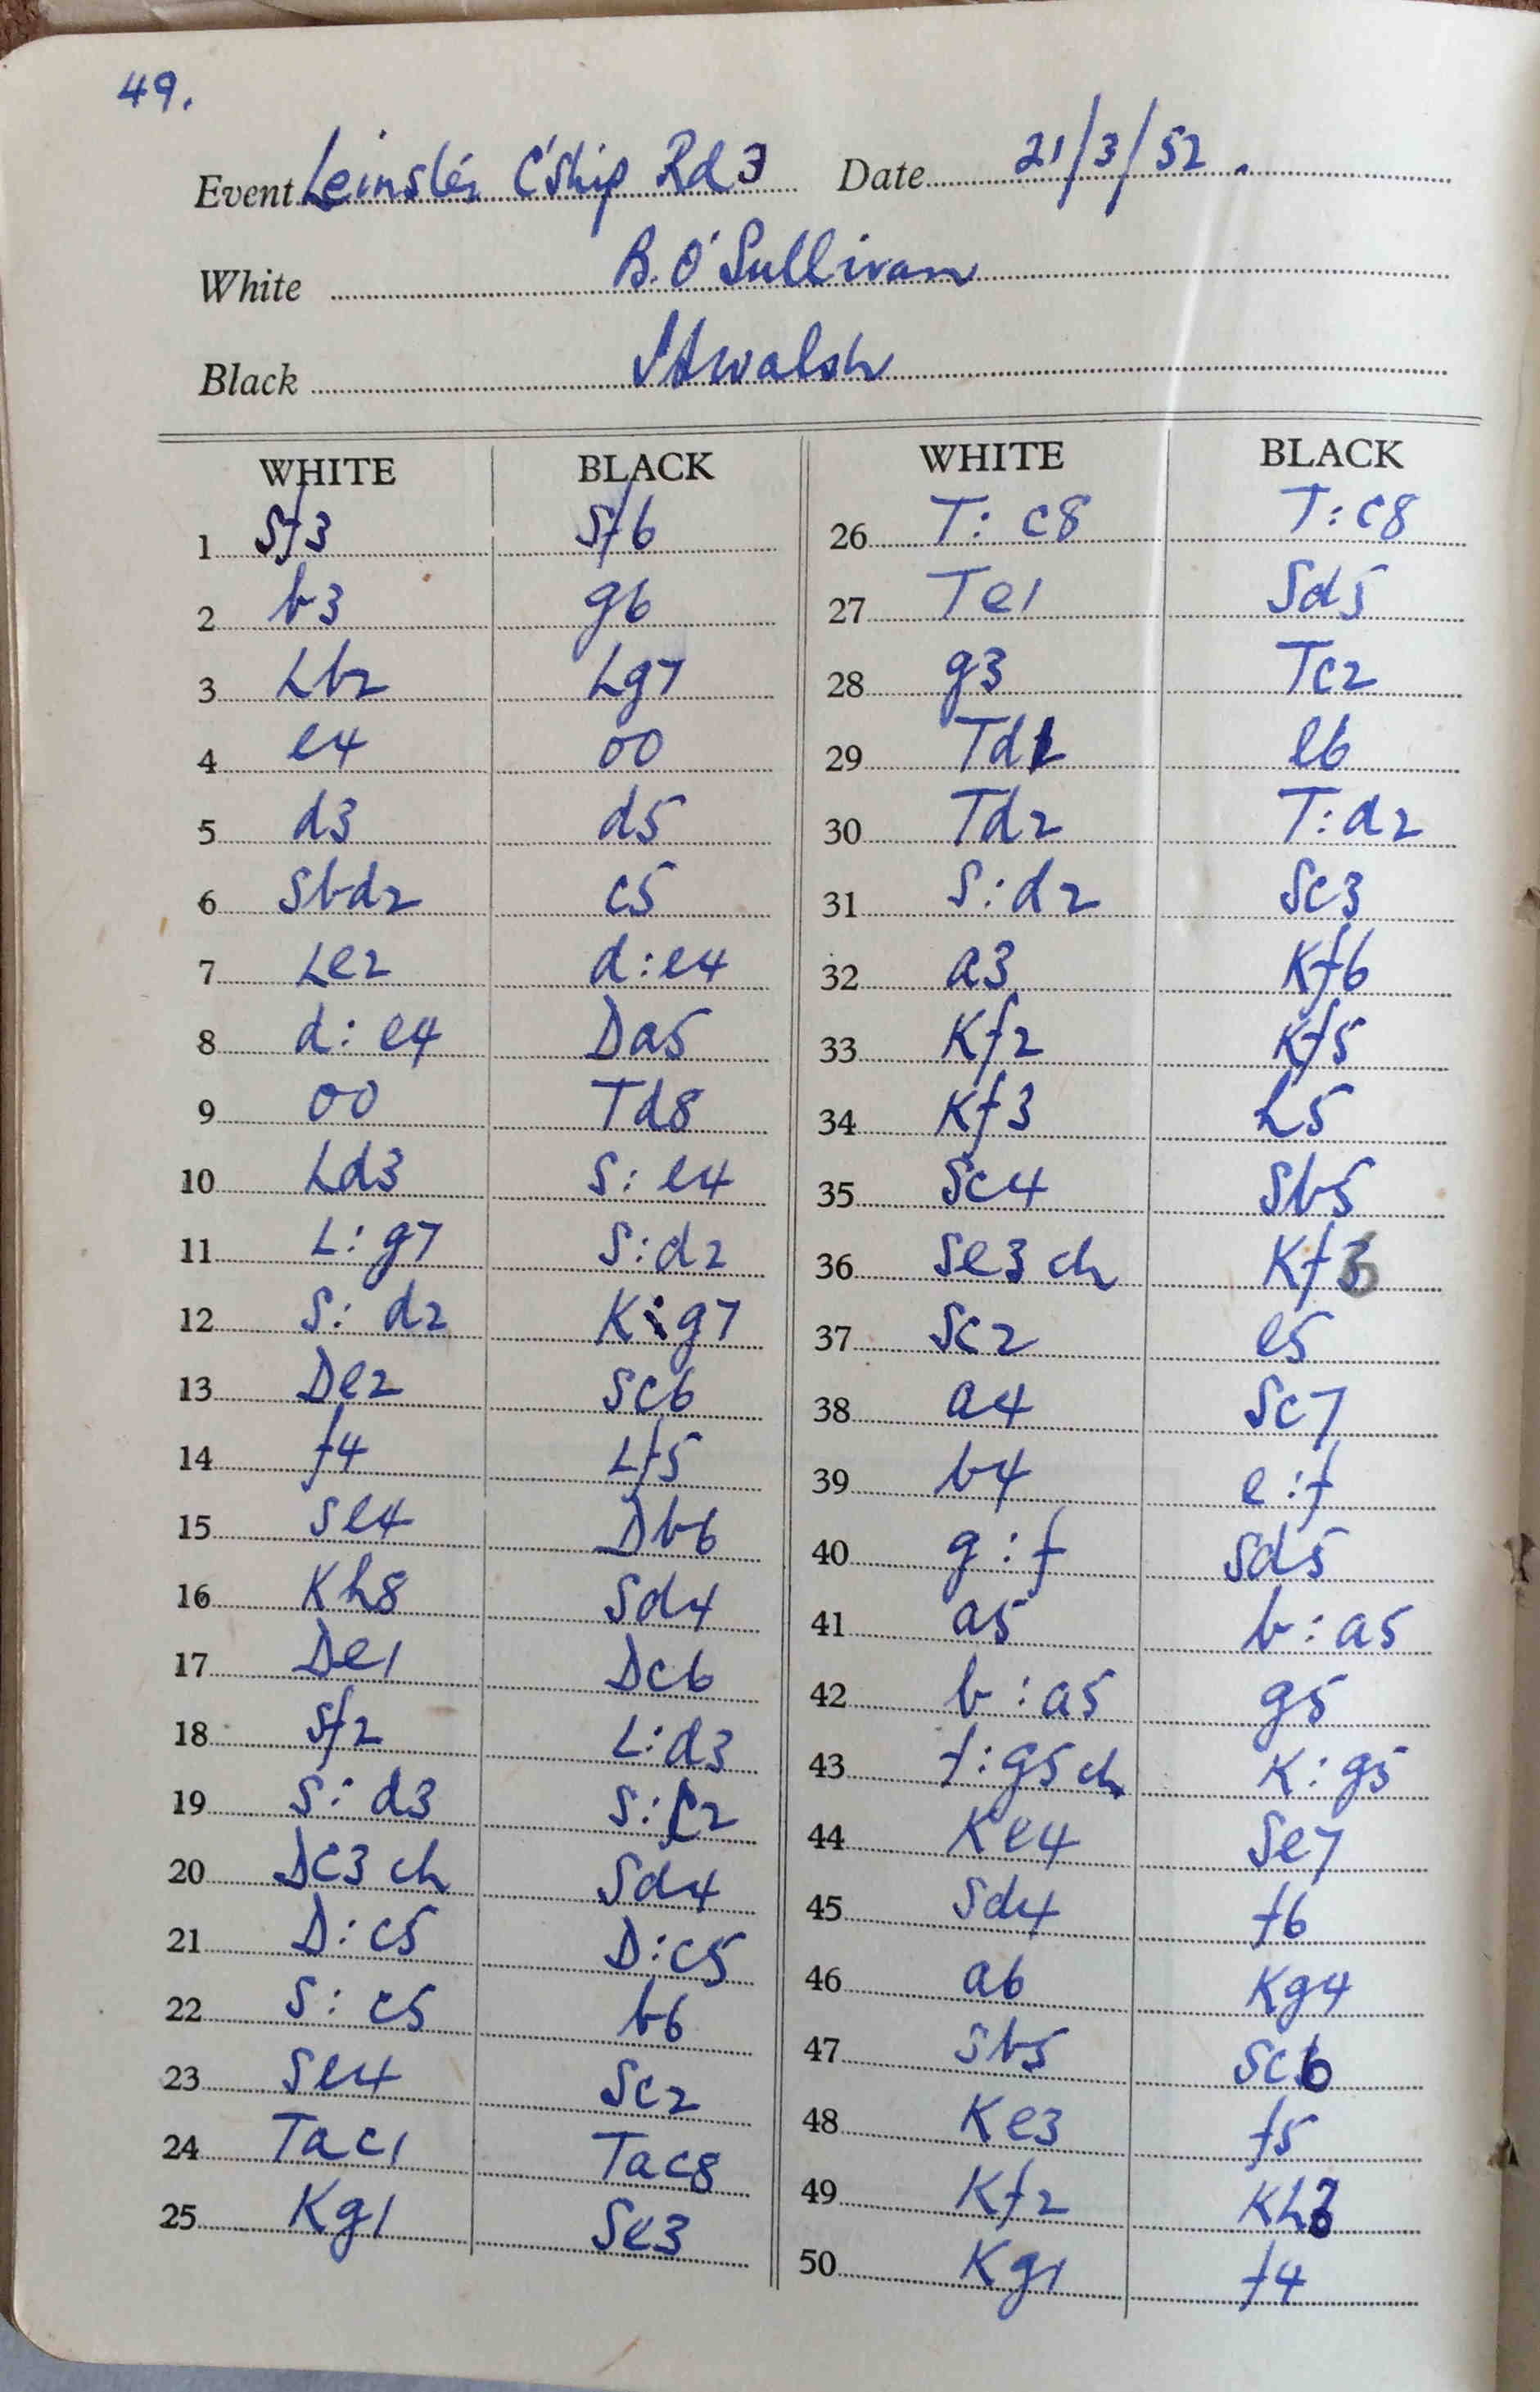 49.
Event Leinster C'ship Rd 3 Date 21/3/52.
White B. O'Sullivan
Black JAWalsh
WHITE BLACK WHITE BLACK
1 Sf3 Sf6 26 T:c8 T:c8
2 b3 g6 27 Te1 Sd5
3 Lb2 Lg7 28 g3 Tc2
4 e4 00 29 Td1 e6
5 d3 d5 30 Td2 T:d2
6 Sbd2 c5 31 S:d2 Sc3
7 Le2 d:e4 32 a3 Kf6
8 d:e4 Da5 33 Kf2 Kf5
9 00 Td8 34 Kf3 h5
10 Ld3 S:e4 35 Sc4 Sb5
11 L:g7 S:d2 36 Se3 ch Kf6
12 S:d2 K:g7 37 Sc2 e5
13 De2 Sc6 38 a4 Sc7
14 f4 Lf5 39 b4 e:f
15 Se4 Db6 40 g:f Sd5
16 Kh8 Sd4 41 a5 b:a5
17 De1 Dc6 42 b:a5 g5
18 Sf2 L:d3 43 f:g5 ch K:g5
19 S:d3 S:c2 44 Ke4 Se7
20 Dc3 ch Sd4 45 Sd4 f6
21 D:c5 D:c5 46 a6 Kg4
22 S:c5 b6 47 Sb5 Sc6
23 Se4 Sc2 48 Ke3 f5
24 Tac1 Tac8 49 Kf2 Kh3
25 Kg1 Se3 50 Kg1 f4